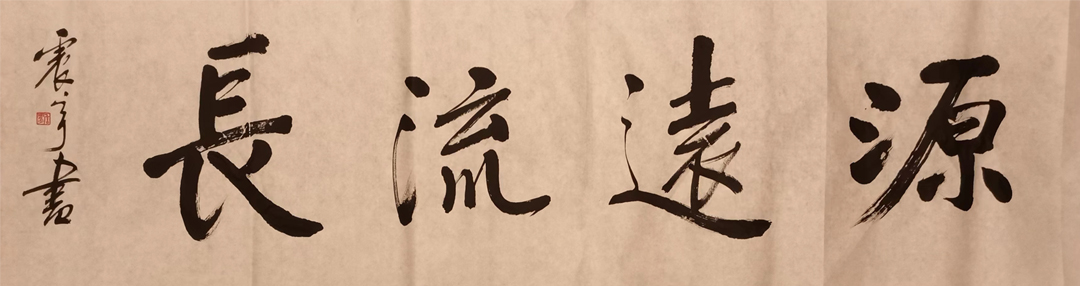 源遠流長
震宇書